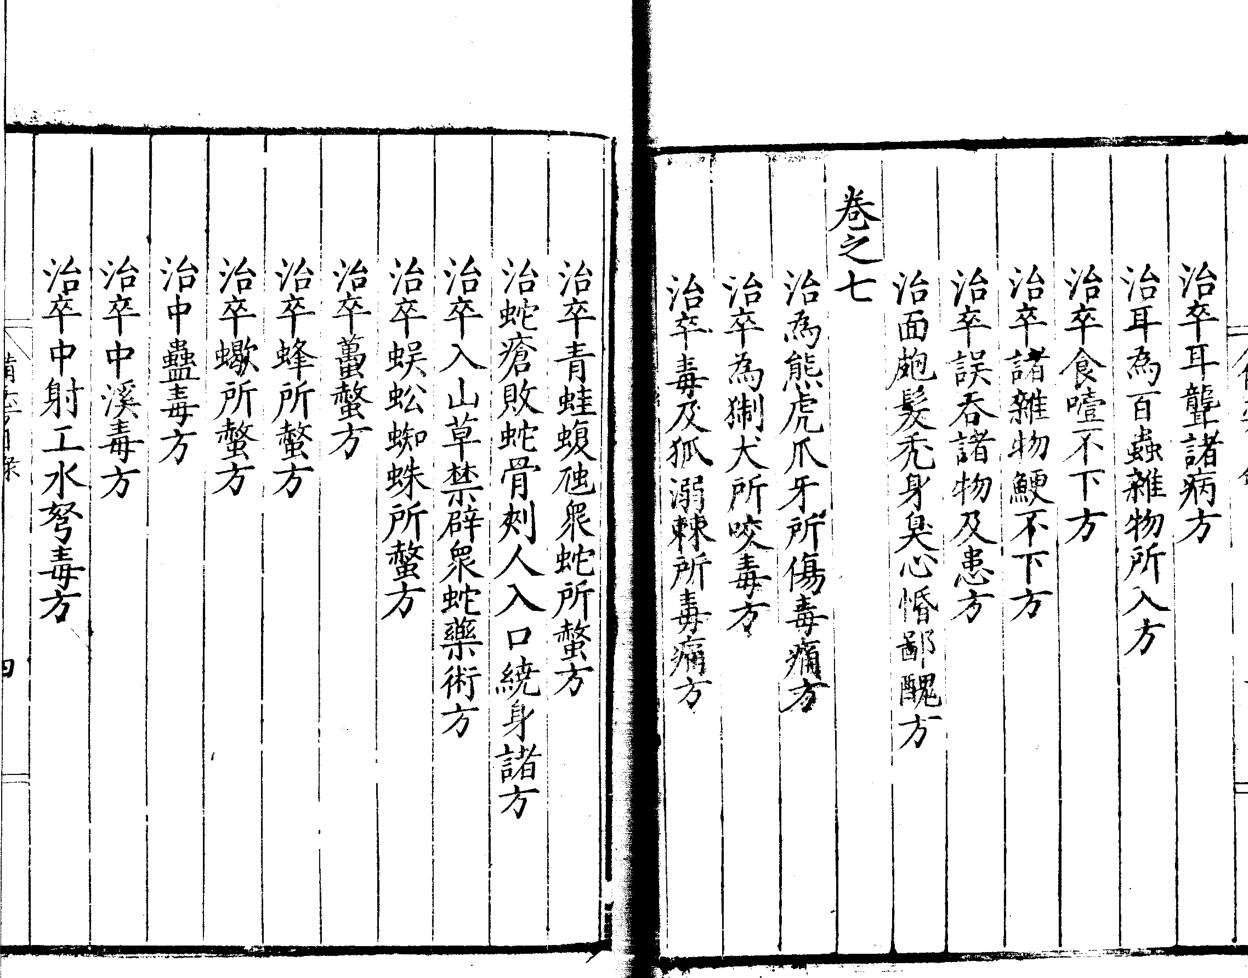 治卒耳聾諸病方
治耳為百蟲雜物所入方
治卒食噎不下方
治卒諸雜物鯁不下方
治卒誤吞諸物及患方
治面皰髮禿身臭心惛鄙醜方
卷之七
治為熊虎爪牙所傷毒痛方
治卒為猘犬所咬毒方
治卒毒及狐溺棘所毒痛方
治卒青蛙蝮虺眾蛇所螫方
治蛇瘡敗蛇骨刾人入口繞身諸方
治卒入山草禁辟眾蛇藥術方
治卒蜈蚣蜘蛛所螫方
治卒蠆螫方
治卒蜂所螫方
治卒蠍所螫方
治中蠱毒方
治卒中溪毒方
治卒中射工水弩毒方
四